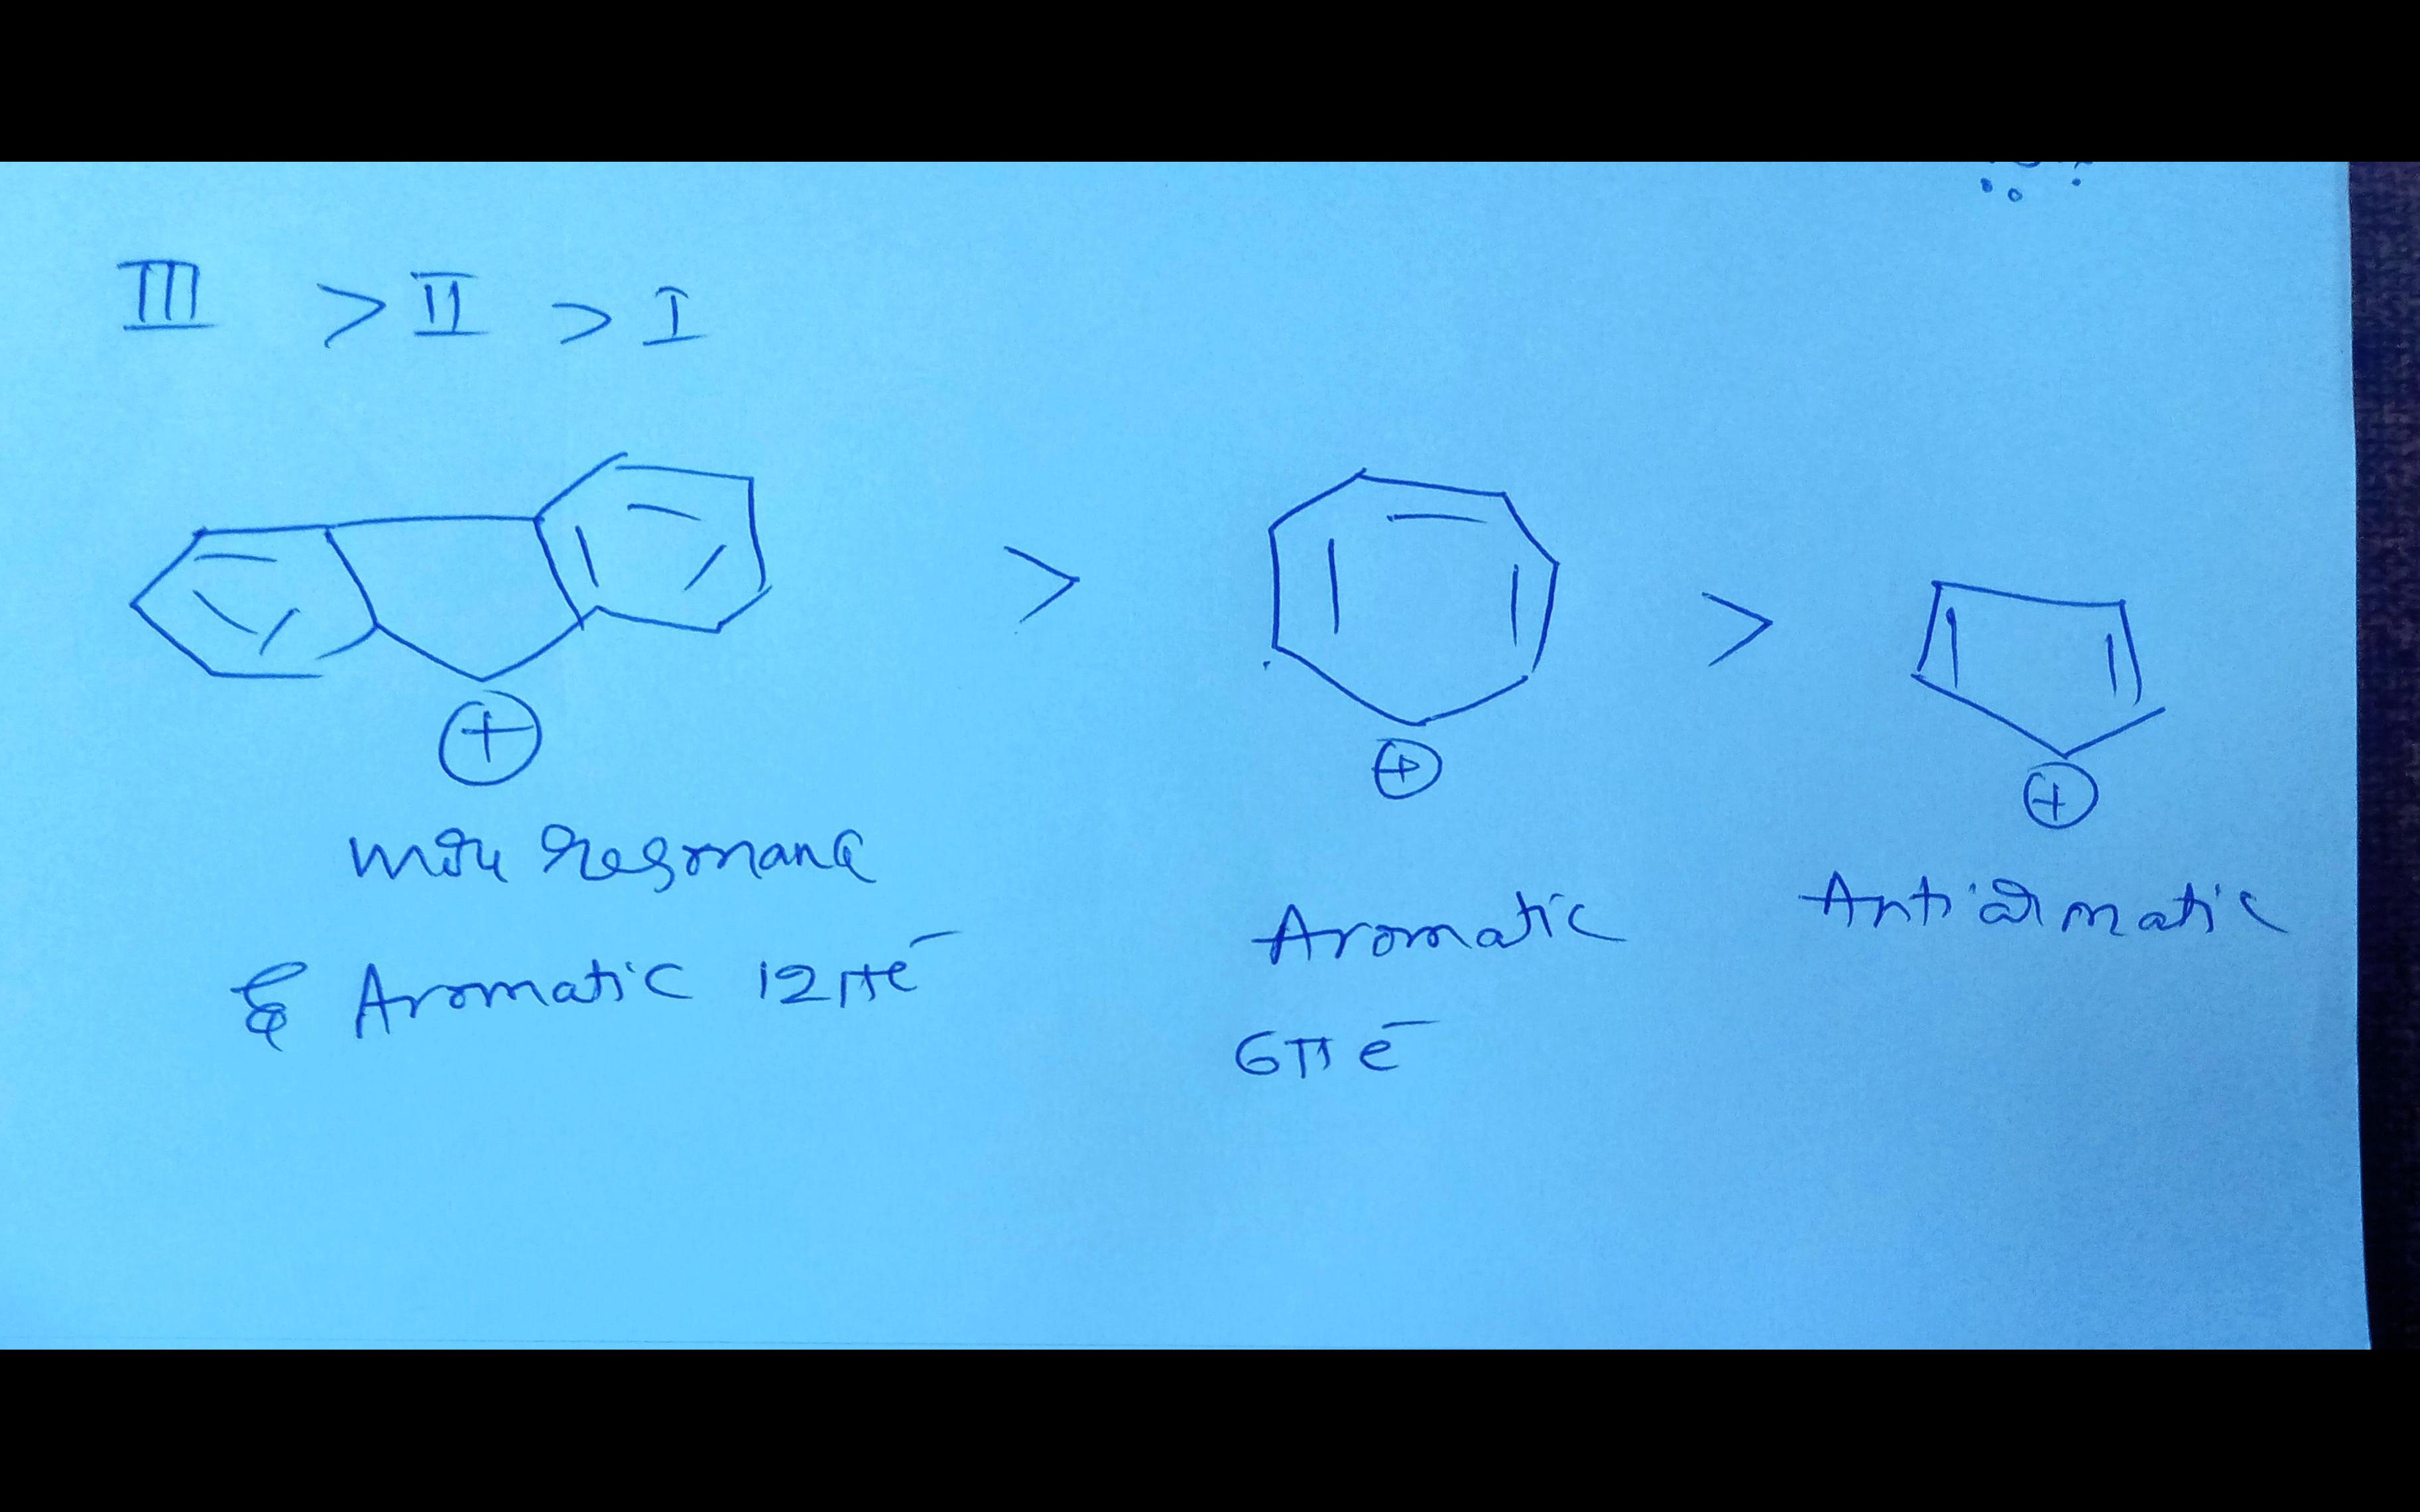 III > II > I
⊕ > ⊕ > ⊕
more resonance
& Aromatic 12πe⁻
Aromatic
6πe⁻
Antiaromatic